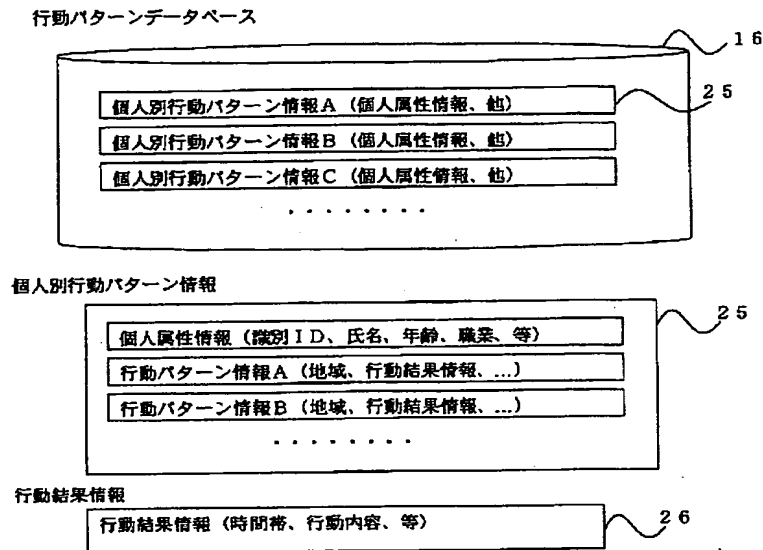 行動パターンデータベース
16
個人別行動パターン情報A(個人属性情報、他)
25
個人別行動パターン情報B(個人属性情報、他)
個人別行動パターン情報C(個人属性情報、他)
・・・・・・・・
個人別行動パターン情報
25
個人属性情報(識別ID、氏名、年齢、職業、等)
行動パターン情報A(地域、行動結果情報、...)
行動パターン情報B(地域、行動結果情報、...)
・・・・・・・・
行動結果情報
行動結果情報(時間帯、行動内容、等)
26